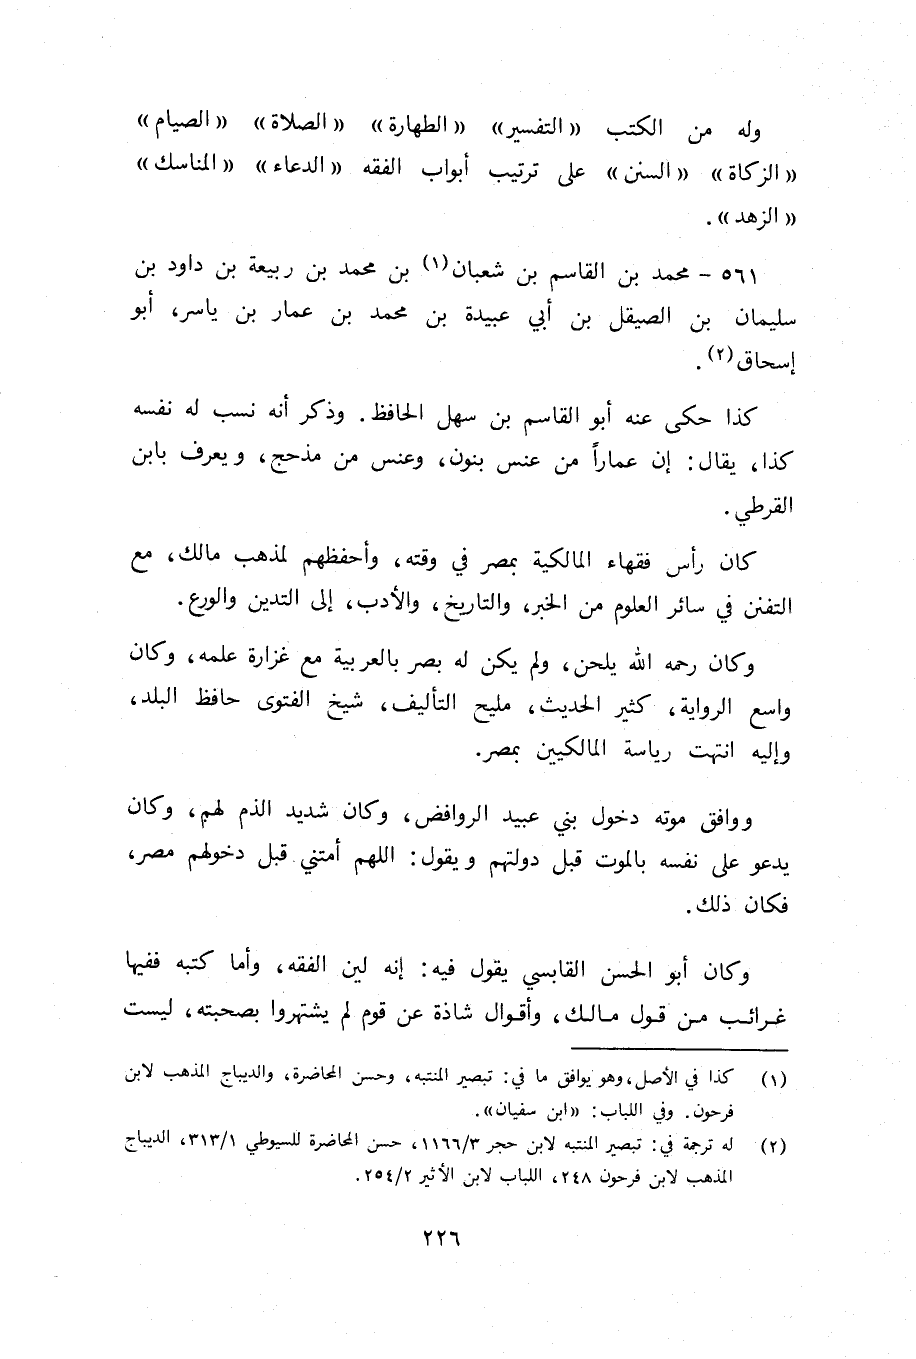 وله من الكتب «التفسير» «الطهارة» «الصلاة» «الصيام»
«الزكاة» «السنن» على ترتيب أبواب الفقه «الدعاء» «المناسك»
«الزهد».
٥٦١ - محمد بن القاسم بن شعبان(١) بن محمد بن ربيعة بن داود بن
سليمان بن الصيقل بن أبي عبيدة بن محمد بن عمار بن ياسر، أبو
إسحاق(٢).
كذا حكى عنه أبو القاسم بن سهل الحافظ. وذكر أنه نسب له نفسه
كذا، يقال: إن عماراً من عنس بنون، وعنس من مذحج، ويعرف بابن
القرطي.
كان رأس فقهاء المالكية بمصر في وقته، وأحفظهم لمذهب مالك، مع
التفنن في سائر العلوم من الخبر، والتاريخ، والأدب، إلى التدين والورع.
وكان رحمه الله يلحن، ولم يكن له بصر بالعربية مع غزارة علمه، وكان
واسع الرواية، كثير الحديث، مليح التأليف، شيخ الفتوى حافظ البلد،
وإليه انتهت رياسة المالكيين بمصر.
ووافق موته دخول بني عبيد الروافض، وكان شديد الذم لهم، وكان
يدعو على نفسه بالموت قبل دولتهم ويقول: اللهم أمتني قبل دخولهم مصر،
فكان ذلك.
وكان أبو الحسن القابسي يقول فيه: إنه لين الفقه، وأما كتبه ففيها
غرائب من قول مالك، وأقوال شاذة عن قوم لم يشتهروا بصحبته، ليست
(١) كذا في الأصل، وهو يوافق ما في: تبصير المنتبه، وحسن المحاضرة، والديباج المذهب لابن
فرحون. وفي اللباب: «ابن سفيان».
(٢) له ترجمة في: تبصير المنتبه لابن حجر ١١٦٦/٣، حسن المحاضرة للسيوطي ٣١٣/١، الديباج
المذهب لابن فرحون ٢٤٨، اللباب لابن الأثير ٢٥٤/٢.
٢٢٦